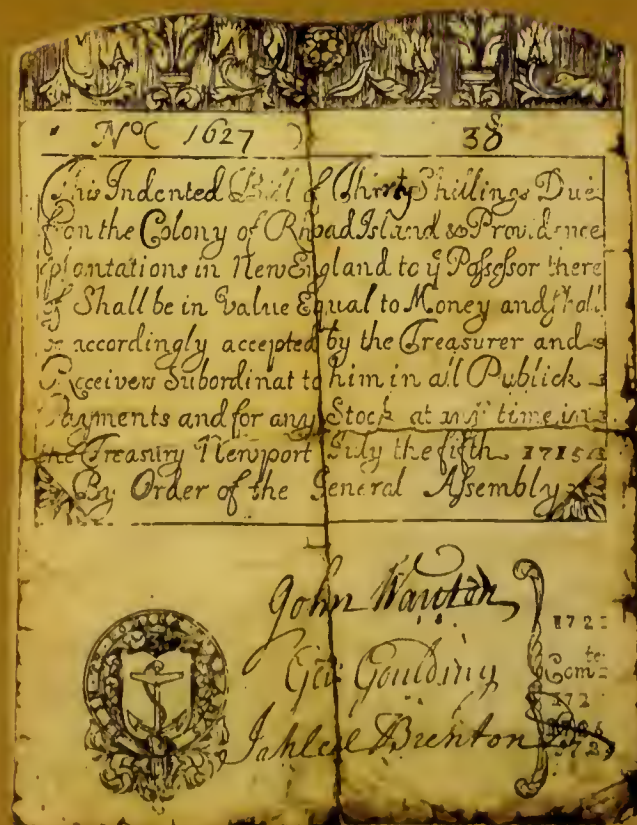 No( 1627 ) 30s
This Indented Bill of Thirty Shillings Due
from the Colony of Rhoad Island & Providence
plantations in New England to ye Possessor there
of Shall be in Value Equal to Money and Shall
be accordingly accepted by the Treasurer and
Receivers Subordinat to him in all Publick
Payments and for any Stock at any time in
the Treasury Newport July the fifth 1715
By Order of the General Assembly
John Wanton
Geo: Goulding
Jahleel Brenton
Comte: